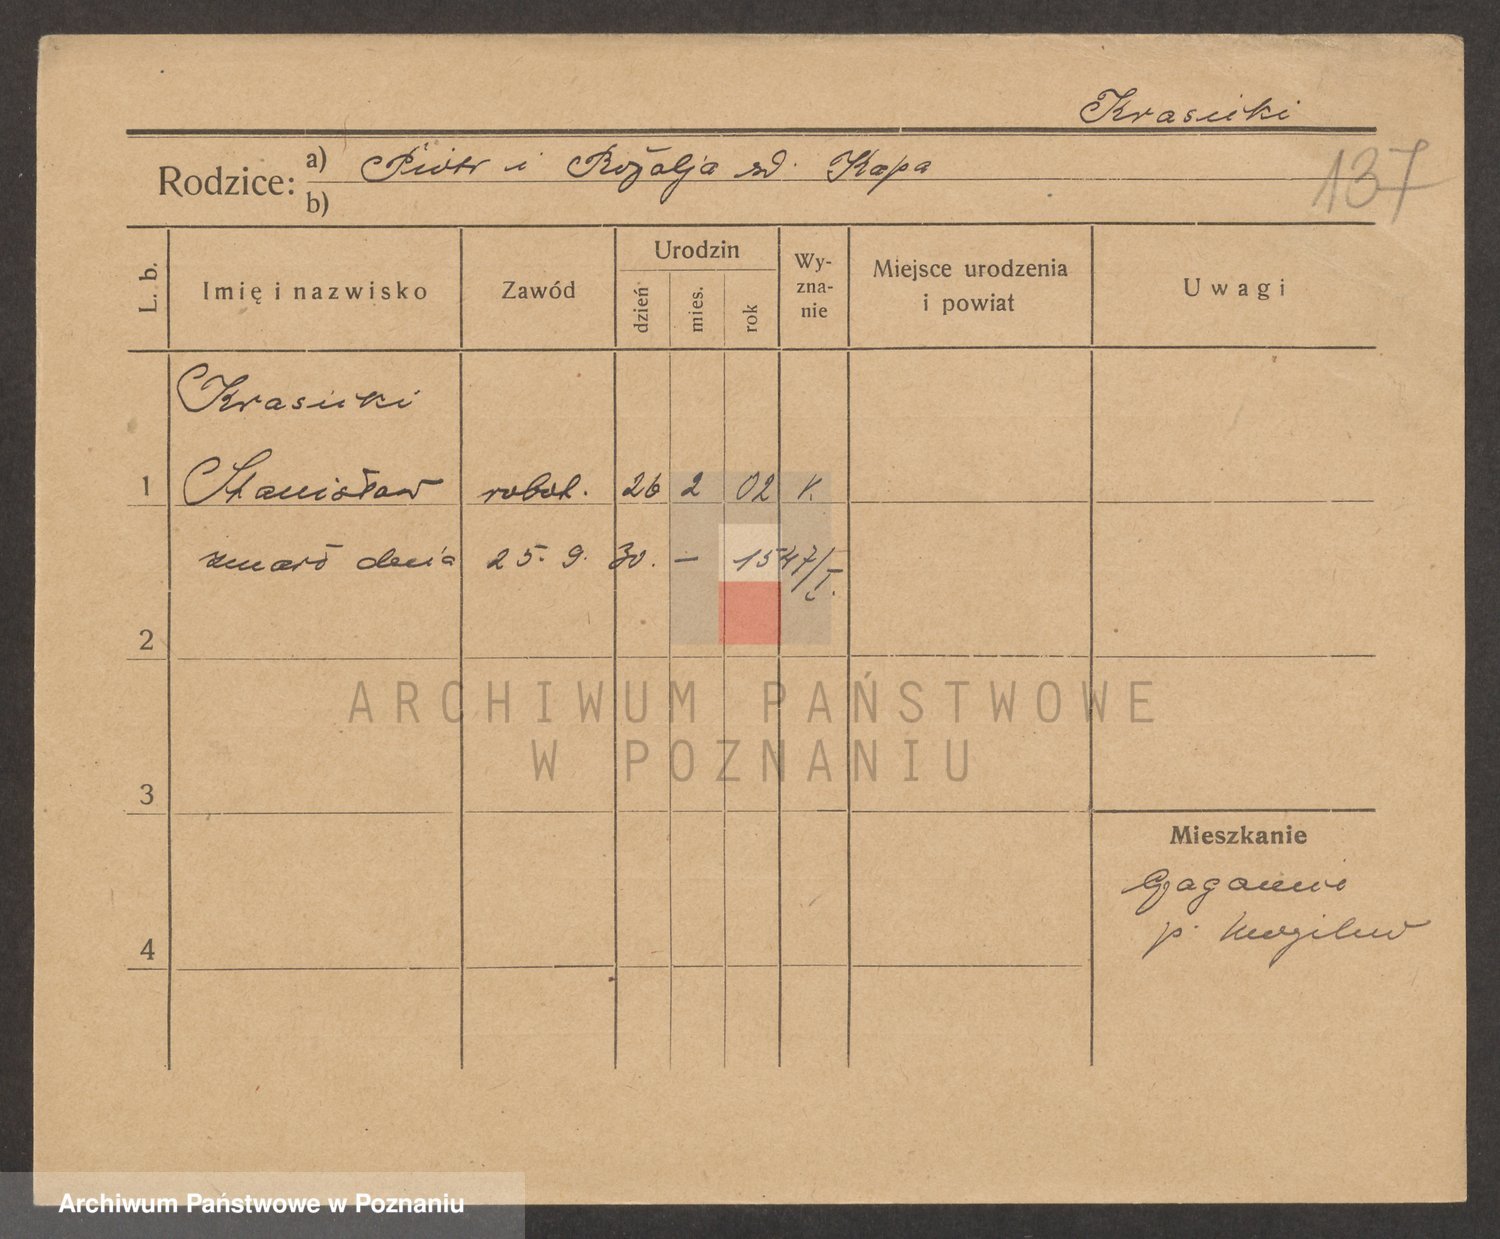 Krasicki
Rodzice: a) Piotr i Rozalja zd. Kapa
b)
137
L. b.
Imię i nazwisko
Zawód
Urodzin
dzień
mies.
rok
Wy-
zna-
nie
Miejsce urodzenia
i powiat
Uwagi
Krasicki
1 Stanisław robot. 26 2 02 k.
zmarł dnia 25. 9. 30. — 1547/I.
2
3
4
Mieszkanie
p.
ARCHIWUM PAŃSTWOWE
W POZNANIU
Archiwum Państwowe w Poznaniu